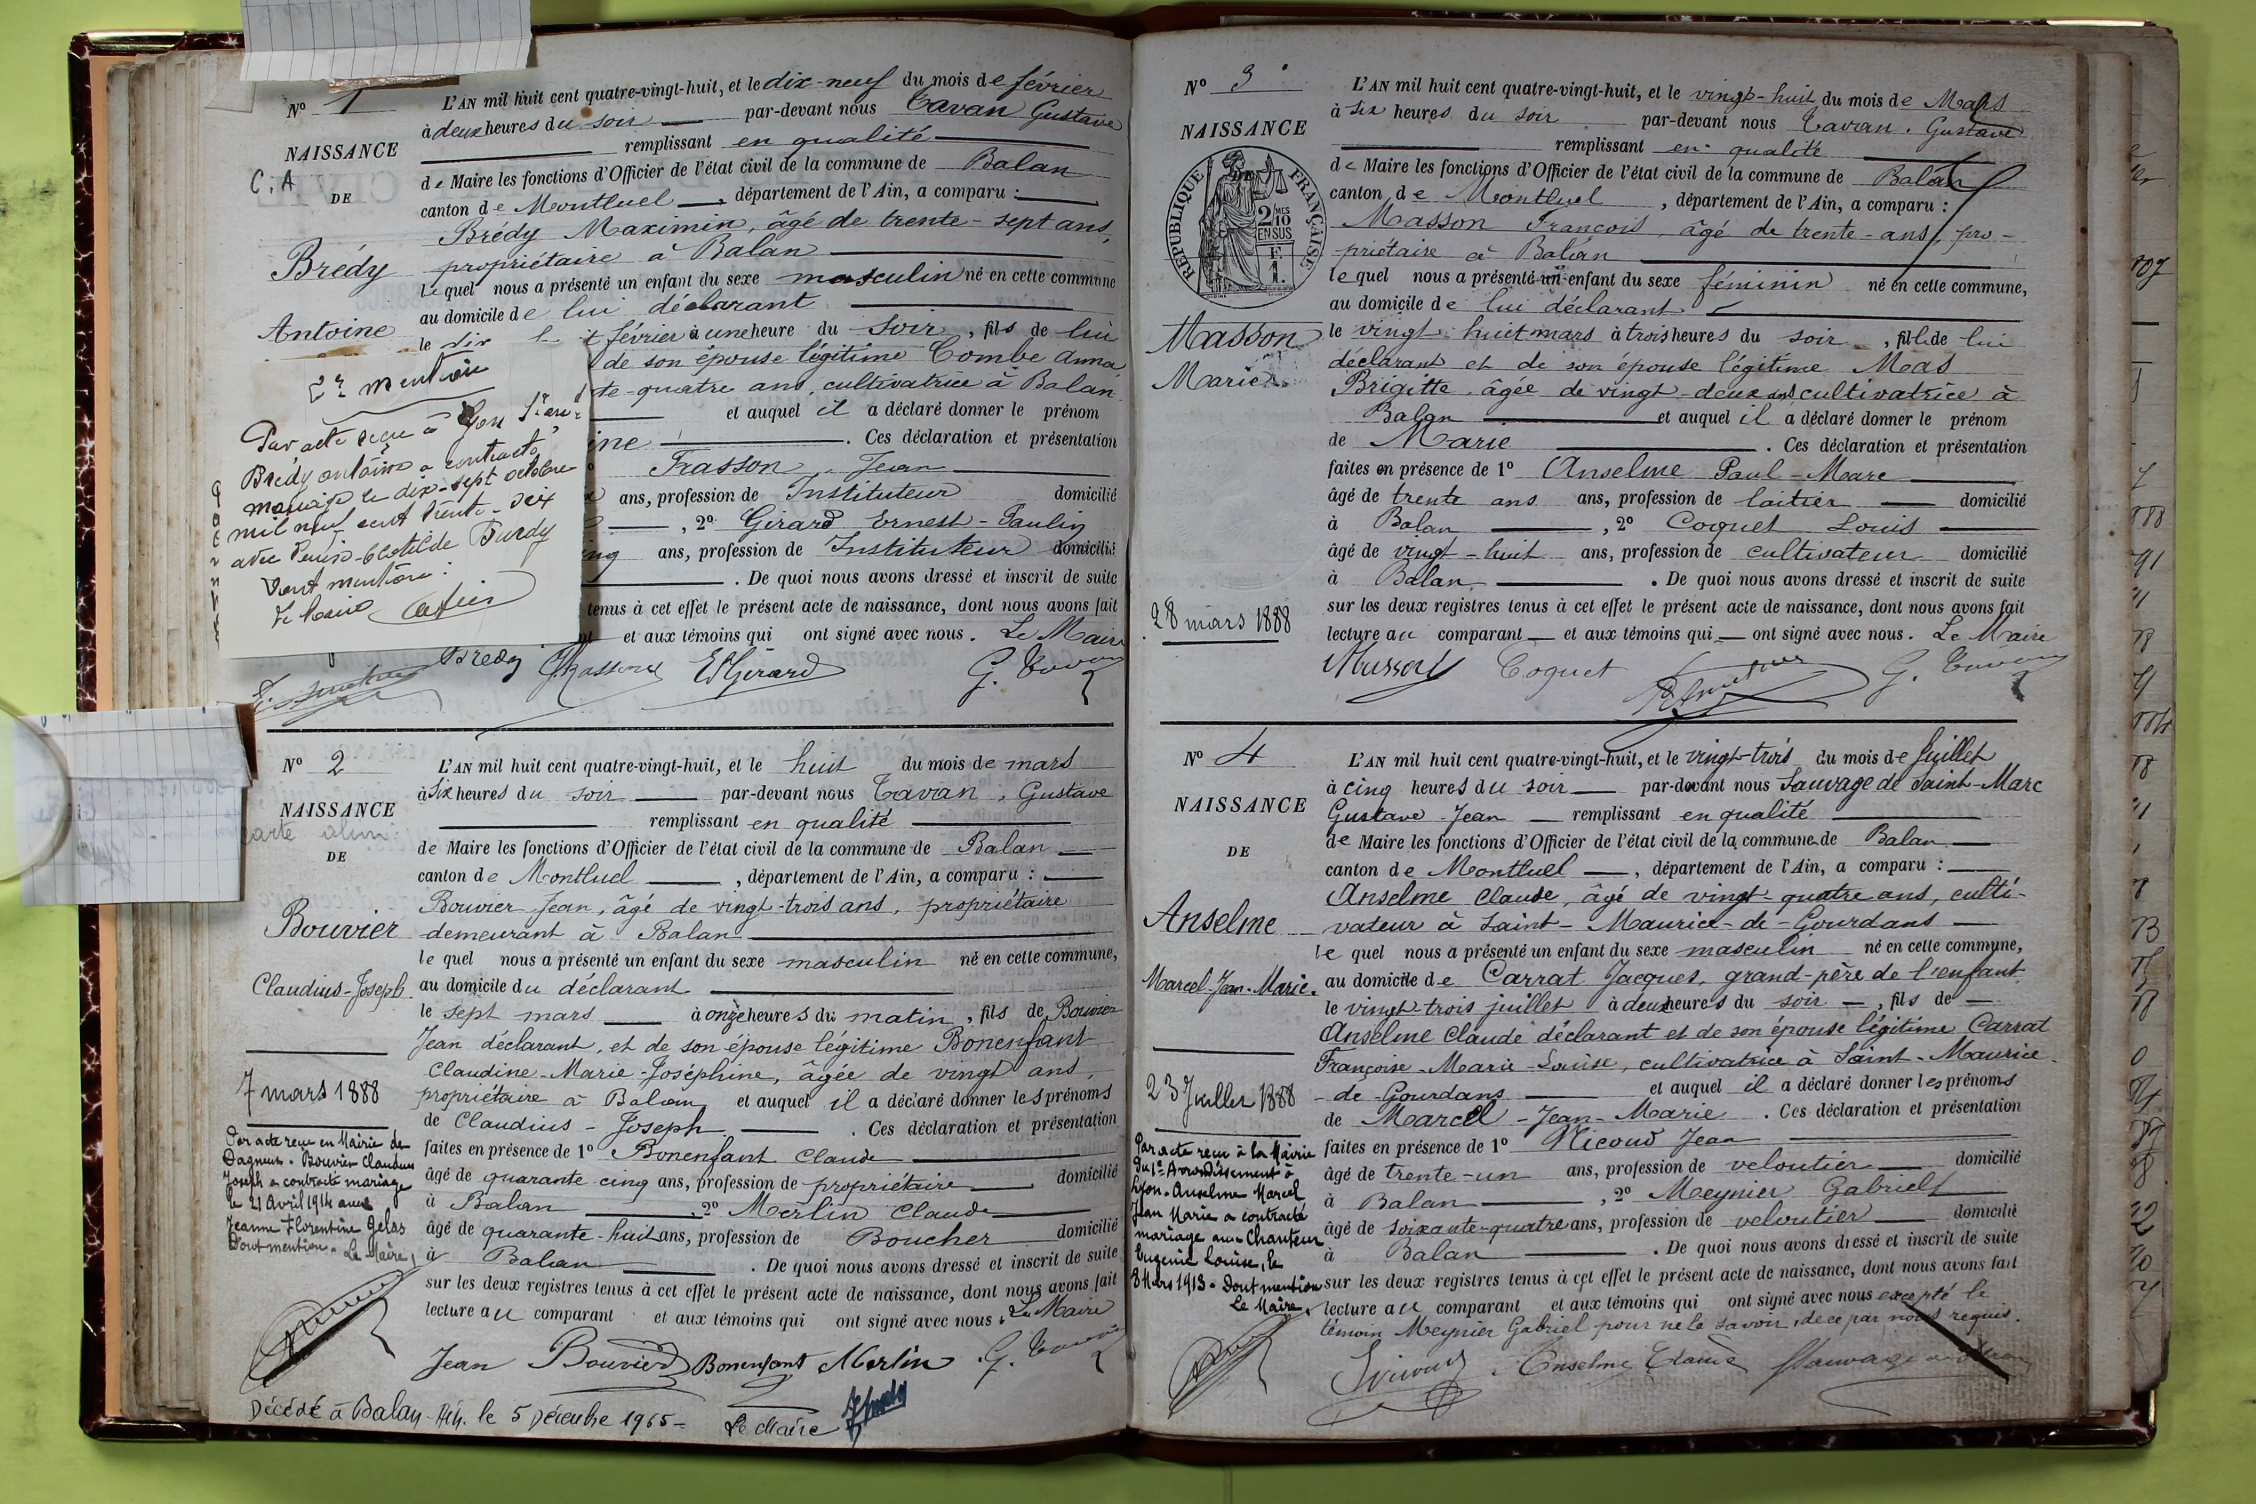 N° 1
L'AN mil huit cent quatre-vingt-huit, et le dix-neuf du mois de février
à deux heures du soir par-devant nous Tavan Gustave
NAISSANCE
remplissant en qualité
C. A
de Maire les fonctions d'Officier de l'état civil de la commune de Balan
DE
canton de Montluel, département de l'Ain, a comparu :
Brédy Maximin, âgé de trente-sept ans,
Brédy
propriétaire à Balan
lequel nous a présenté un enfant du sexe masculin né en cette commune
au domicile de lui déclarant
Antoine
le dix février à une heure du soir, fils de lui
de son épouse légitime Combe Anna
te-quatre ans, cultivatrice à Balan
et auquel il a déclaré donner le prénom
ine . Ces déclaration et présentation
Frasson Jean
ans, profession de Instituteur domicilié
, 2° Girard Ernest-Paulin
ing ans, profession de Instituteur domicilié
. De quoi nous avons dressé et inscrit de suite
tenus à cet effet le présent acte de naissance, dont nous avons fait
et aux témoins qui ont signé avec nous. Le Maire
2e mention
Par acte reçu à Lyon
Brédy antoine a contracté
mariage le dix-sept octobre
mil neuf cent trente-six
avec Clotilde Purdy
Dont mention :
Le Maire
Bredy JFrasson EGirard G. Tavan
N° 2
L'AN mil huit cent quatre-vingt-huit, et le huit du mois de mars
à six heures du soir par-devant nous Tavan, Gustave
NAISSANCE
remplissant en qualité
carte alim.
DE
de Maire les fonctions d'Officier de l'état civil de la commune de Balan
canton de Montluel, département de l'Ain, a comparu :
Bouvier Jean, âgé de vingt-trois ans, propriétaire
Bouvier
demeurant à Balan
lequel nous a présenté un enfant du sexe masculin né en cette commune,
Claudius-Joseph
au domicile du déclarant
le sept mars à onze heures du matin, fils de Bouvier
Jean déclarant, et de son épouse légitime Bonenfant
Claudine-Marie-Joséphine, âgée de vingt ans,
7 mars 1888
propriétaire à Balan et auquel il a déclaré donner les prénoms
de Claudius-Joseph . Ces déclaration et présentation
faites en présence de 1° Bonenfant Claude
âgé de quarante-cinq ans, profession de propriétaire domicilié
à Balan, 2° Merlin Claude
âgé de quarante-huit ans, profession de Boucher domicilié
à Balan . De quoi nous avons dressé et inscrit de suite
sur les deux registres tenus à cet effet le présent acte de naissance, dont nous avons fait
lecture au comparant et aux témoins qui ont signé avec nous. Le Maire
Par acte reçu en Mairie de
Dagneux. Bouvier Claudius
Joseph a contracté mariage
le 21 Avril 1914 avec
Jeanne Florentine Gelas
Dont mention. Le Maire,
Jean Bouvier Bonenfant Merlin G. Tavan
Décédé à Balan - Ain. le 5 Décembre 1965 - Le Maire
N° 3
L'AN mil huit cent quatre-vingt-huit, et le vingt-huit du mois de Mars
à six heures du soir par-devant nous Tavan, Gustave
NAISSANCE
remplissant en qualité
DE
de Maire les fonctions d'Officier de l'état civil de la commune de Balan
RÉPUBLIQUE FRANÇAISE
2 MES
10
EN SUS
F.
1.
canton de Montluel, département de l'Ain, a comparu :
Masson François, âgé de trente-ans, pro-
priétaire à Balan
lequel nous a présenté un enfant du sexe féminin né en cette commune,
au domicile de lui déclarant
Masson
le vingt-huit mars à trois heures du soir, fille de lui
déclarant et de son épouse légitime Mas
Marie
Brigitte, âgée de vingt-deux ans cultivatrice à
Balan et auquel il a déclaré donner le prénom
de Marie . Ces déclaration et présentation
faites en présence de 1° Anselme Paul-Marc
âgé de trente ans ans, profession de laitier domicilié
à Balan, 2° Coquet Louis
âgé de vingt-huit ans, profession de cultivateur domicilié
à Balan . De quoi nous avons dressé et inscrit de suite
28 mars 1888
sur les deux registres tenus à cet effet le présent acte de naissance, dont nous avons fait
lecture au comparant et aux témoins qui ont signé avec nous. Le Maire
Masson Coquet G. Tavan
N° 4
L'AN mil huit cent quatre-vingt-huit, et le vingt-trois du mois de Juillet
à cinq heures du soir par-devant nous Sauvage de Saint-Marc
NAISSANCE
Gustave-Jean remplissant en qualité
DE
de Maire les fonctions d'Officier de l'état civil de la commune de Balan
canton de Montluel, département de l'Ain, a comparu :
Anselme Claude, âgé de vingt-quatre ans, culti-
Anselme
vateur à Saint-Maurice-de-Gourdans
lequel nous a présenté un enfant du sexe masculin né en cette commune,
Marcel-Jean-Marie.
au domicile de Carrat Jacques, grand-père de l'enfant
le vingt-trois juillet à deux heures du soir, fils de
Anselme Claude déclarant et de son épouse légitime Carrat
Françoise-Marie-Louise, cultivatrice à Saint-Maurice-
23 Juillet 1888
-de-Gourdans et auquel il a déclaré donner les prénoms
de Marcel-Jean-Marie . Ces déclaration et présentation
faites en présence de 1° Nicoud Jean
âgé de trente-un ans, profession de veloutier domicilié
à Balan, 2° Meynier Gabriel
âgé de soixante-quatre ans, profession de veloutier domicilié
à Balan . De quoi nous avons dressé et inscrit de suite
sur les deux registres tenus à cet effet le présent acte de naissance, dont nous avons fait
lecture au comparant et aux témoins qui ont signé avec nous excepté le
témoin Meynier Gabriel pour ne le savoir, de ce par nous requis.
Par acte reçu à la Mairie
du 1er Arrondissement à
Lyon. Anselme Marcel
Jean Marie a contracté
mariage avec Chanteur
Eugénie Louise, le
8 Mars 1913. Dont mention
Le Maire,
Nicoud Anselme Claude Sauvage de St Marc